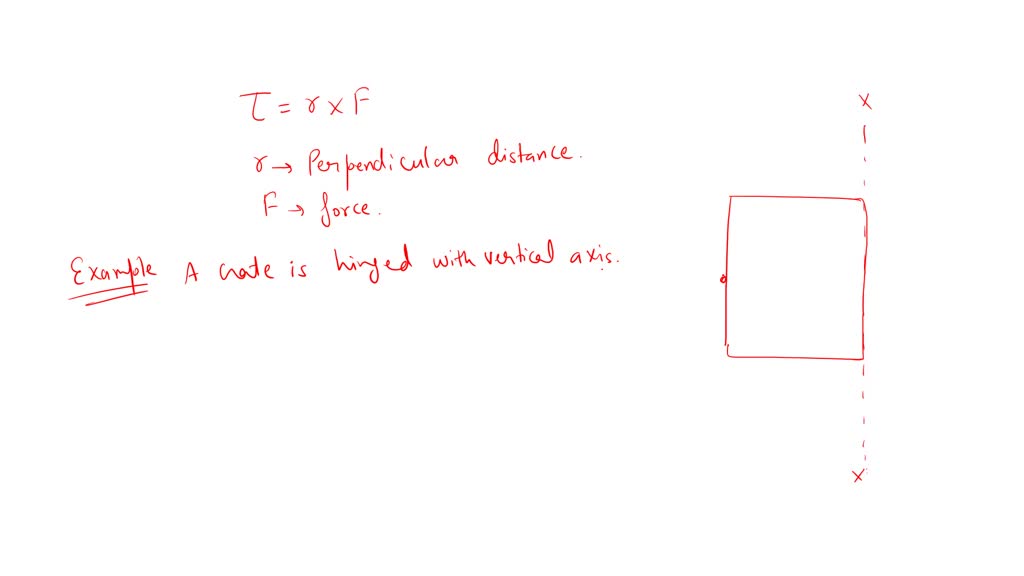 τ = r × F
r → Perpendicular distance.
F → force.
Example A crate is hinged with vertical axis.
X
X'